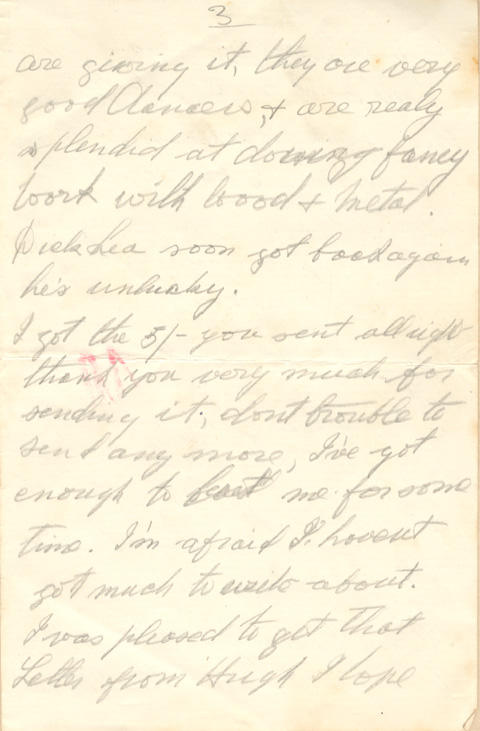 3
are giving it, they are very
good dancers, & are realy
splendid at doing fancy
work with wood & metal.
Dick Lea soon got back again
he's unlucky.
I got the 5/- you sent allright
thank you very much for
sending it, dont trouble to
send any more, I've got
enough to last me for some
time. I'm afraid I havent
got much to write about.
I was pleased to get that
Letter from Hugh I hope